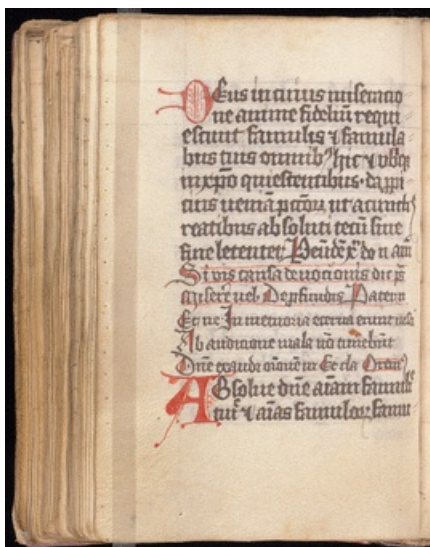 Deus in cuius miseratio
ne anime fidelium requi
escunt famulis ⁊ famula
bus tuis omnibꝰ hic ⁊ vbiqꝫ
in xp̄o quiescentibus · da ꝓpi
cius veniā pctōꝝ ut a cunctis
reatibus absoluti tecū sine
fine letentet᷑ P eūdē xp̄
Si vis causa deuocionis dic p̄s
Miserere vel De ꝓfundis Pater nr̄
Et ne In memoria eterna erunt
Ab audicione mala nō timebūt
Dn̄e exaudi or̄onem Et cla Oremꝰ
Absolue dn̄e aīam famuli
tui ⁊ aīas famuloꝝ famu